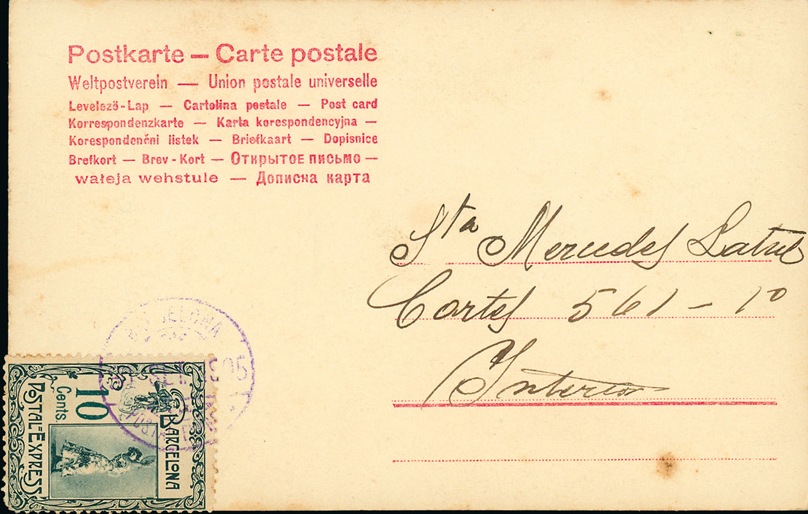 Postkarte — Carte postale
Weltpostverein — Union postale universelle
Levelező-Lap — Cartolina postale — Post card
Korrespondenzkarte — Karta korespondencyjna —
Korespondenční listek — Briefkaart — Dopisnice
Brefkort — Brev-Kort — Открытое письмо —
wateja wehstule — Дописна карта
Sta Mercedes
Cortes 561 - 1o
Interior
10
Cents.
BARCELONA
POSTAL-EXPRESS